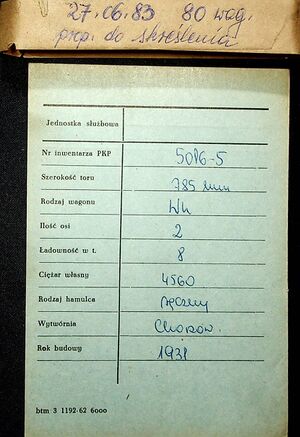 27.06.83 80 wag.
prop. do skreślenia
Jednostka służbowa
Nr inwentarza PKP 5086-5
Szerokość toru 785 mm
Rodzaj wagonu Wh
Ilość osi 2
Ładowność w t. 8
Ciężar własny 4560
Rodzaj hamulca ręczny
Wytwórnia Chorzów.
Rok budowy 1931
btm 3 1192-62 6000